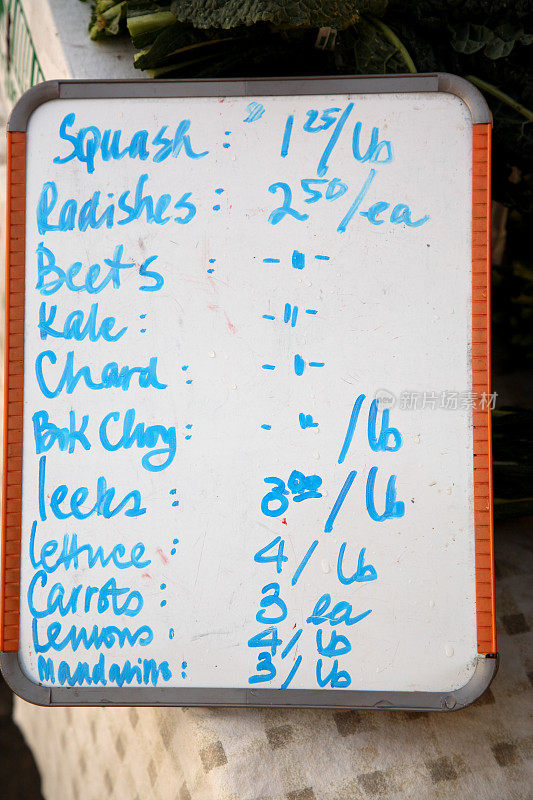 Squash : 1 25/lb
Radishes : 2 50/ea
Beets : - " -
Kale : - " -
Chard : - " -
Bok Choy : - " /lb
leeks : 3 00/lb
lettuce : 4/lb
Carrots : 3 ea
Lemons : 4/lb
Mandarins : 3/lb
新片场素材